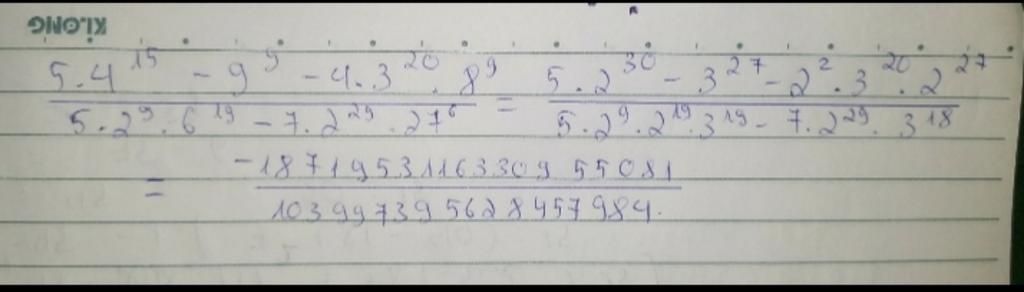 KLONG
5.4^15 - 9^9 - 4.3^20 . 8^9 / 5.2^9 . 6^19 - 7.2^29 . 27^6 = 5.2^30 - 3^27 - 2^2 . 3^20 . 2^27 / 5.2^9 . 2^19 . 3^19 - 7.2^29 . 3^18
= -1871953116330955081 / 103997395628457984.